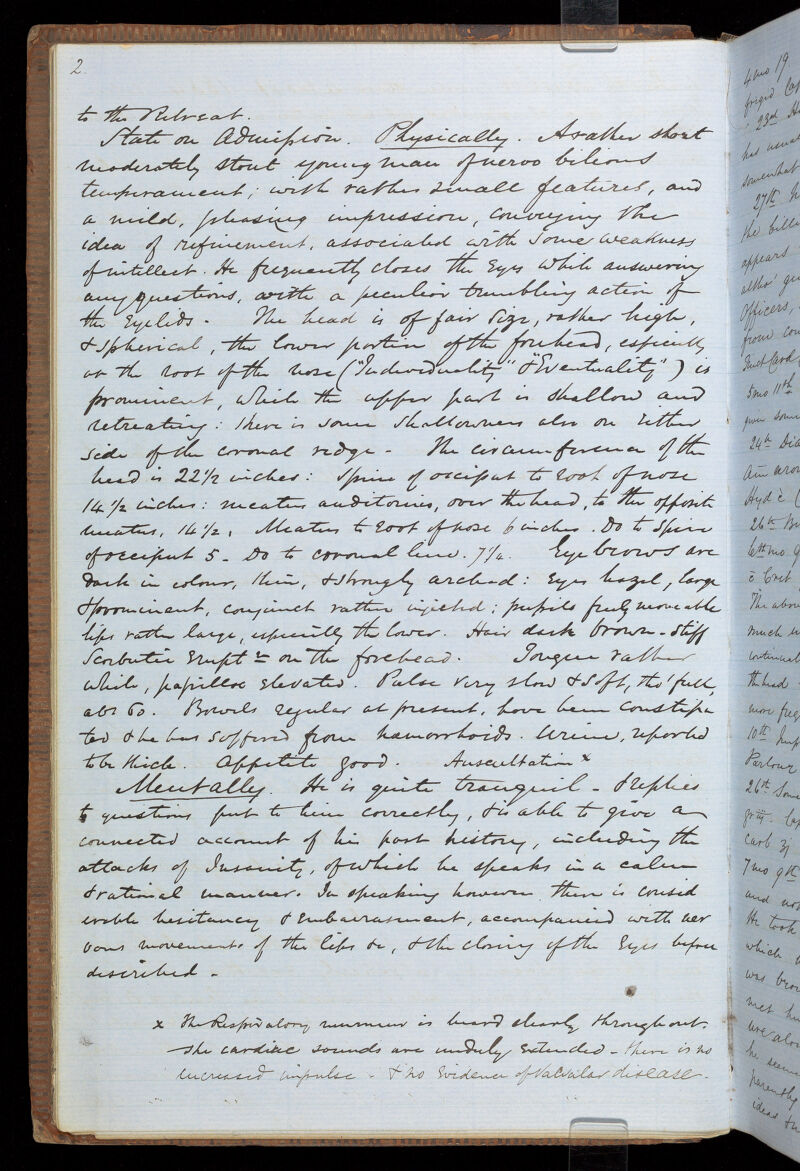 2.
to the Retreat.
State on Admission. Physically. A rather short
moderately stout young man of nervo bilious
temperament; with rather small features, and
a mild, pleasing impression, conveying the
idea of refinement, associated with some weakness
of intellect. He frequently closes the Eyes while answering
any questions, with a peculiar trembling action of
the Eyelids - The head is of fair size, rather high,
& spherical, the lower portion of the forehead, especially
at the root of the nose ("Individuality" & "Eventuality") is
prominent, while the upper part is shallow and
retreating: there is some shallowness also on Either
side of the coronal redge - The circumference of the
head is 22½ inches: Spine of occiput to root of nose
14½ inches: meatus auditorius, over the head, to the opposite
meatus, 14½, Meatus to root of nose 6 inches. Do to Spine
of occiput 5 - Do to coronal line. 7¼. Eyebrows are
dark in colour, thin, & strongly arched: Eyes hazel, large
& prominent, conjunct rather injected; pupils freely moveable
lips rather large, especially the lower. Hair dark brown - stiff
Scorbutic Erupt n on the forehead. Tongue rather
white, papilloe elevated. Pulse very slow & soft, tho' full,
abt 60. Bowels regular at present, have been constipa
ted & he has suffered from hæmorrhoids. Urine, reported
to be thick. Appetite good. Auscultation x
Mentally. He is quite tranquil - & replies
to questions put to him correctly, & is able to give a
connected account of his past history, including the
attacks of Insanity, of which he speaks in a calm
& rational manner. In speaking however there is consid
erable hesitancy & Embarrasment, accompanied with ner
vous movements of the lips &c, & the closing of the Eyes before
described -
x The Respiratory murmur is heard clearly throughout.
The cardiac sounds are unduly extended - there is no
increased impulse - & no Evidence of Valvular disease.
4 mo 19
23rd
has usual
somewhat
27th
the
appears
altho'
Officers,
from
5 mo 11th
24th
26th
6th mo
The
much
continual
the head
10th
Parlour
26th
carb
7 mo 9th
and
He took
which
was
met
he
ideas